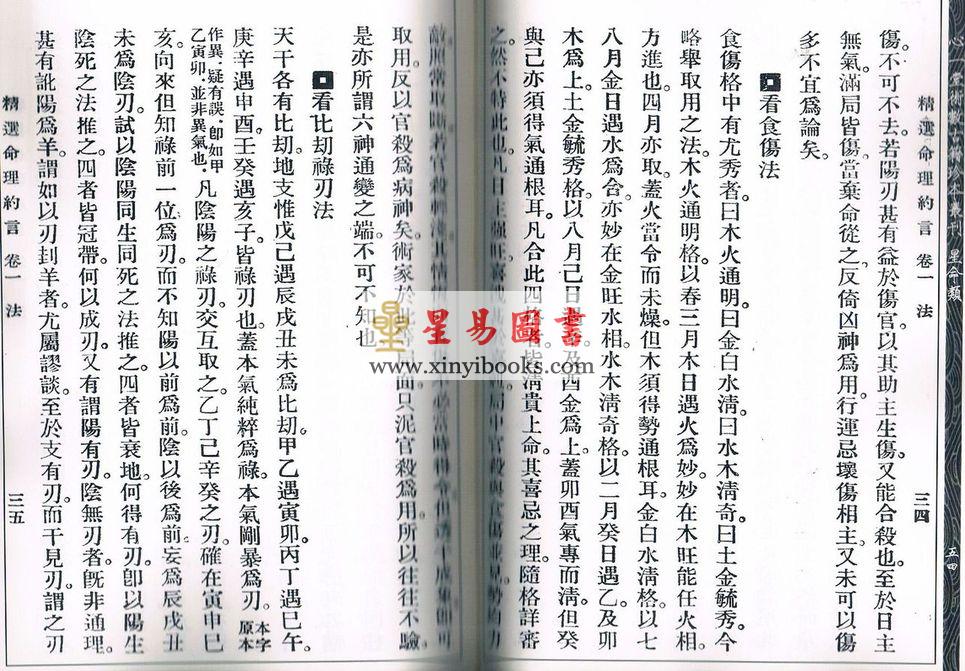 心一堂術數古籍珍本叢刊 星命類
五四
精選命理約言 卷一 法
三四
傷。不可不去。若陽刃甚有益於傷官。以其助主生傷。又能合殺也。至於日主
無氣。滿局皆傷。當棄命從之。反倚凶神爲用。行運忌壞傷相主。又未可以傷
多不宜爲論矣。
看食傷法
食傷格中有尤秀者。曰木火通明。曰金白水淸。曰水木淸奇。曰土金毓秀。今
略舉取用之法。木火通明格。以春三月木日遇火爲妙。妙在木旺能任火相
方進也。四月亦取。蓋火當令而未燥。但木須得勢通根耳。金白水淸格。以七
八月金日遇水爲合。亦妙在金旺水相。水木淸奇格。以二月癸日遇乙及卯
木爲上。土金毓秀格。以八月己日及酉金爲上。蓋卯酉氣專而淸。但癸
與己亦須得氣通根耳。凡合此四者。皆淸貴上命。其喜忌之理。隨格詳審
之。然不特此也。凡日主强旺。局中官殺與食傷並見。勢均力
敵。照常取斷。若官殺輕淺。其情必當時得令。但透干成象。卽可
取用。反以官殺爲病神矣。術家於此等局面。只泥官殺爲用。所以往往不驗。
是亦所謂六神通變之端。不可不知也
看比刧祿刃法
天干各有比刧。地支惟戊己遇辰戌丑未爲比刧。甲乙遇寅卯。丙丁遇巳午。
庚辛遇申酉。壬癸遇亥子。皆祿刃也。蓋本氣純粹爲祿。本氣剛暴爲刃。本字原本
作異。疑有誤。卽如甲乙寅卯。並非異氣也。凡陰陽之祿刃。交互取之。乙丁己辛癸之刃。確在寅申巳
亥。向來但知祿前一位爲刃。而不知陽以前爲前。陰以後爲前。妄爲辰戌丑
未爲陰刃。試以陰陽同生同死之法推之。四者皆衰地。何得有刃。卽以陽生
陰死之法推之。四者皆冠帶。何以成刃。又有謂陽有刃。陰無刃者。旣非通理。
甚有訛陽爲羊。謂如以刃刲羊者。尤屬謬談。至於支有刃。而干見刃。謂之刃
精選命理約言 卷一 法
三五
星易圖書
www.xinyibooks.com